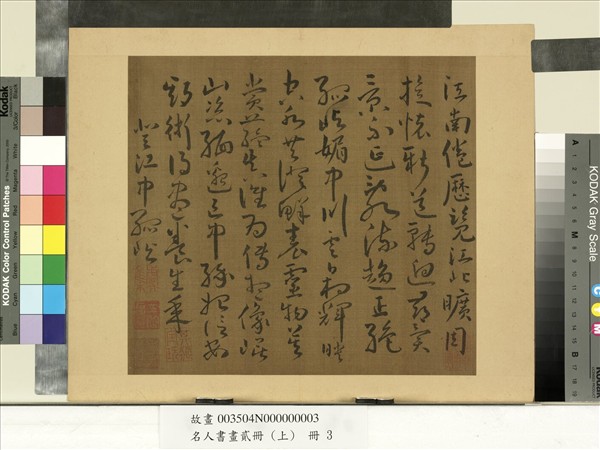 江南倦歷覽江北曠周
旋懷新道轉迥尋異
景不延亂流趨正絕
孤嶼媚中川雲日相輝映
空水共澄鮮表靈物莫
賞蘊真誰為傳想像崑
山姿緬邈區中緣始信安
期術得盡養生年
登江中孤嶼
故畫 003504N000000003
名人書畫貳冊（上） 冊 3
Kodak
KODAK Color Control Patches
Blue
Cyan
Green
Yellow
Red
Magenta
White
3/Color
Black
KODAK Gray Scale
A 1 2 3 4 5 6 M 8 9 10 11 12 13 14 15 B 17 18 19
C
Y
M